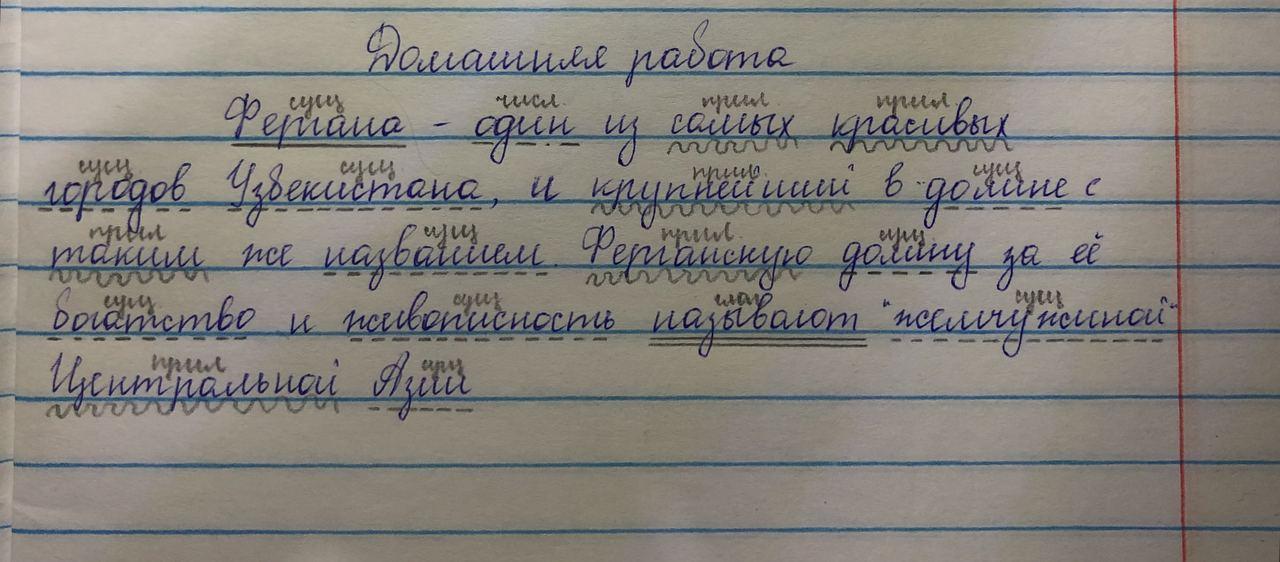 Домашняя работа
сущ числ. прил. прил
Фергана - один из самых красивых
сущ сущ прил. сущ
городов Узбекистана, и крупнейший в долине с
прил сущ прил. сущ
таким же названием. Ферганскую долину за её
сущ. сущ глаг сущ
богатство и живописность называют "жемчужиной"
прил сущ
Центральной Азии